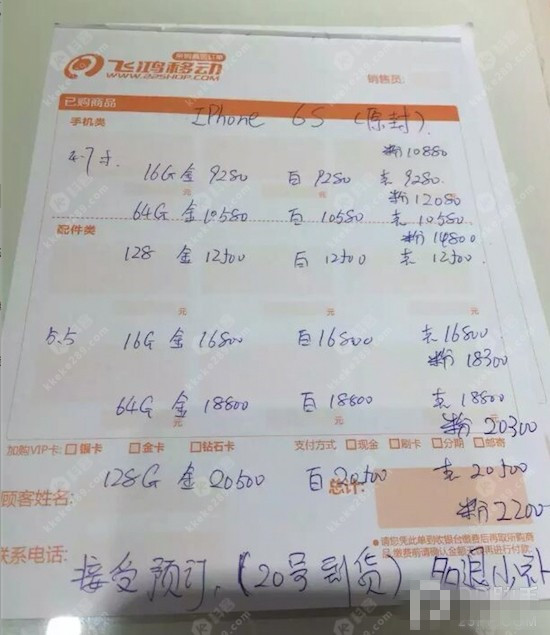 飞鸿移动
WWW.228HOP.COM
销售员:
已购商品
手机类 IPhone 6S (原封).
粉 10880
4.7寸 16G 金 9280 白 9280 灰 9280
元 元
粉 12080
64G 金 10580 白 10580 灰 10580
配件类 粉 14800
128 金 12500 白 12500 灰 12500
元 元 元
5.5 16G 金 16800 白 16800 灰 16800
粉 18300
64G 金 18800 白 18800 灰 18800
元 元
粉 20300
加购VIP卡: 银卡 金卡 钻石卡 支付方式 现金 刷卡 分期 邮寄
128G 金 20500 白 20500 灰 20500
总计:
顾客姓名: 粉 2200
●请您凭此单到收银台缴费后再取所购商
品,缴费前请确认金额 再进行付款.
联系电话:
接受预订,(20号到货) 多退少补